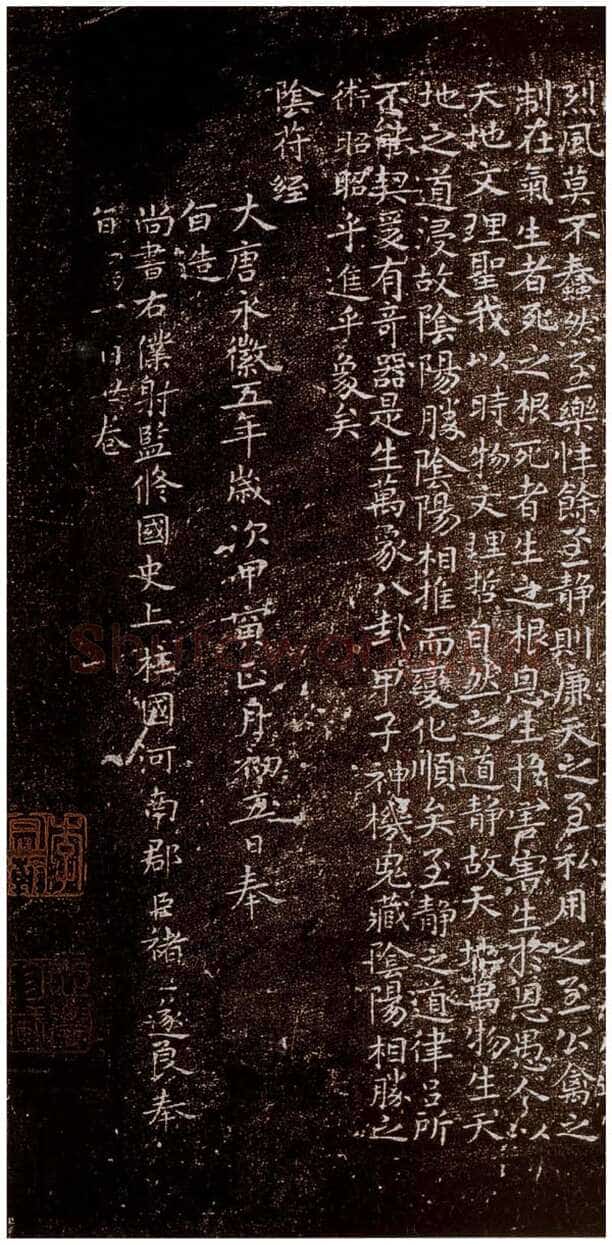 烈風莫不蠢然至樂性餘至静則廉天之至私用之至公禽之
制在氣生者死之根死者生之根恩生扵害害生扵恩愚人以
天地文理聖我以時物文理哲自然之道静故天地萬物生天
地之道浸故陰陽勝陰陽相推而變化順矣至静之道律吕所
不能契爰有奇器是生萬象八卦甲子神機鬼藏陰陽相勝之
術昭昭乎進乎象矣
陰符经
大唐永徽五年歳次甲寅正月初五日奉
旨造
尚書右僕射監修國史上柱國河南郡臣禇遂良奉
旨
一日
卷